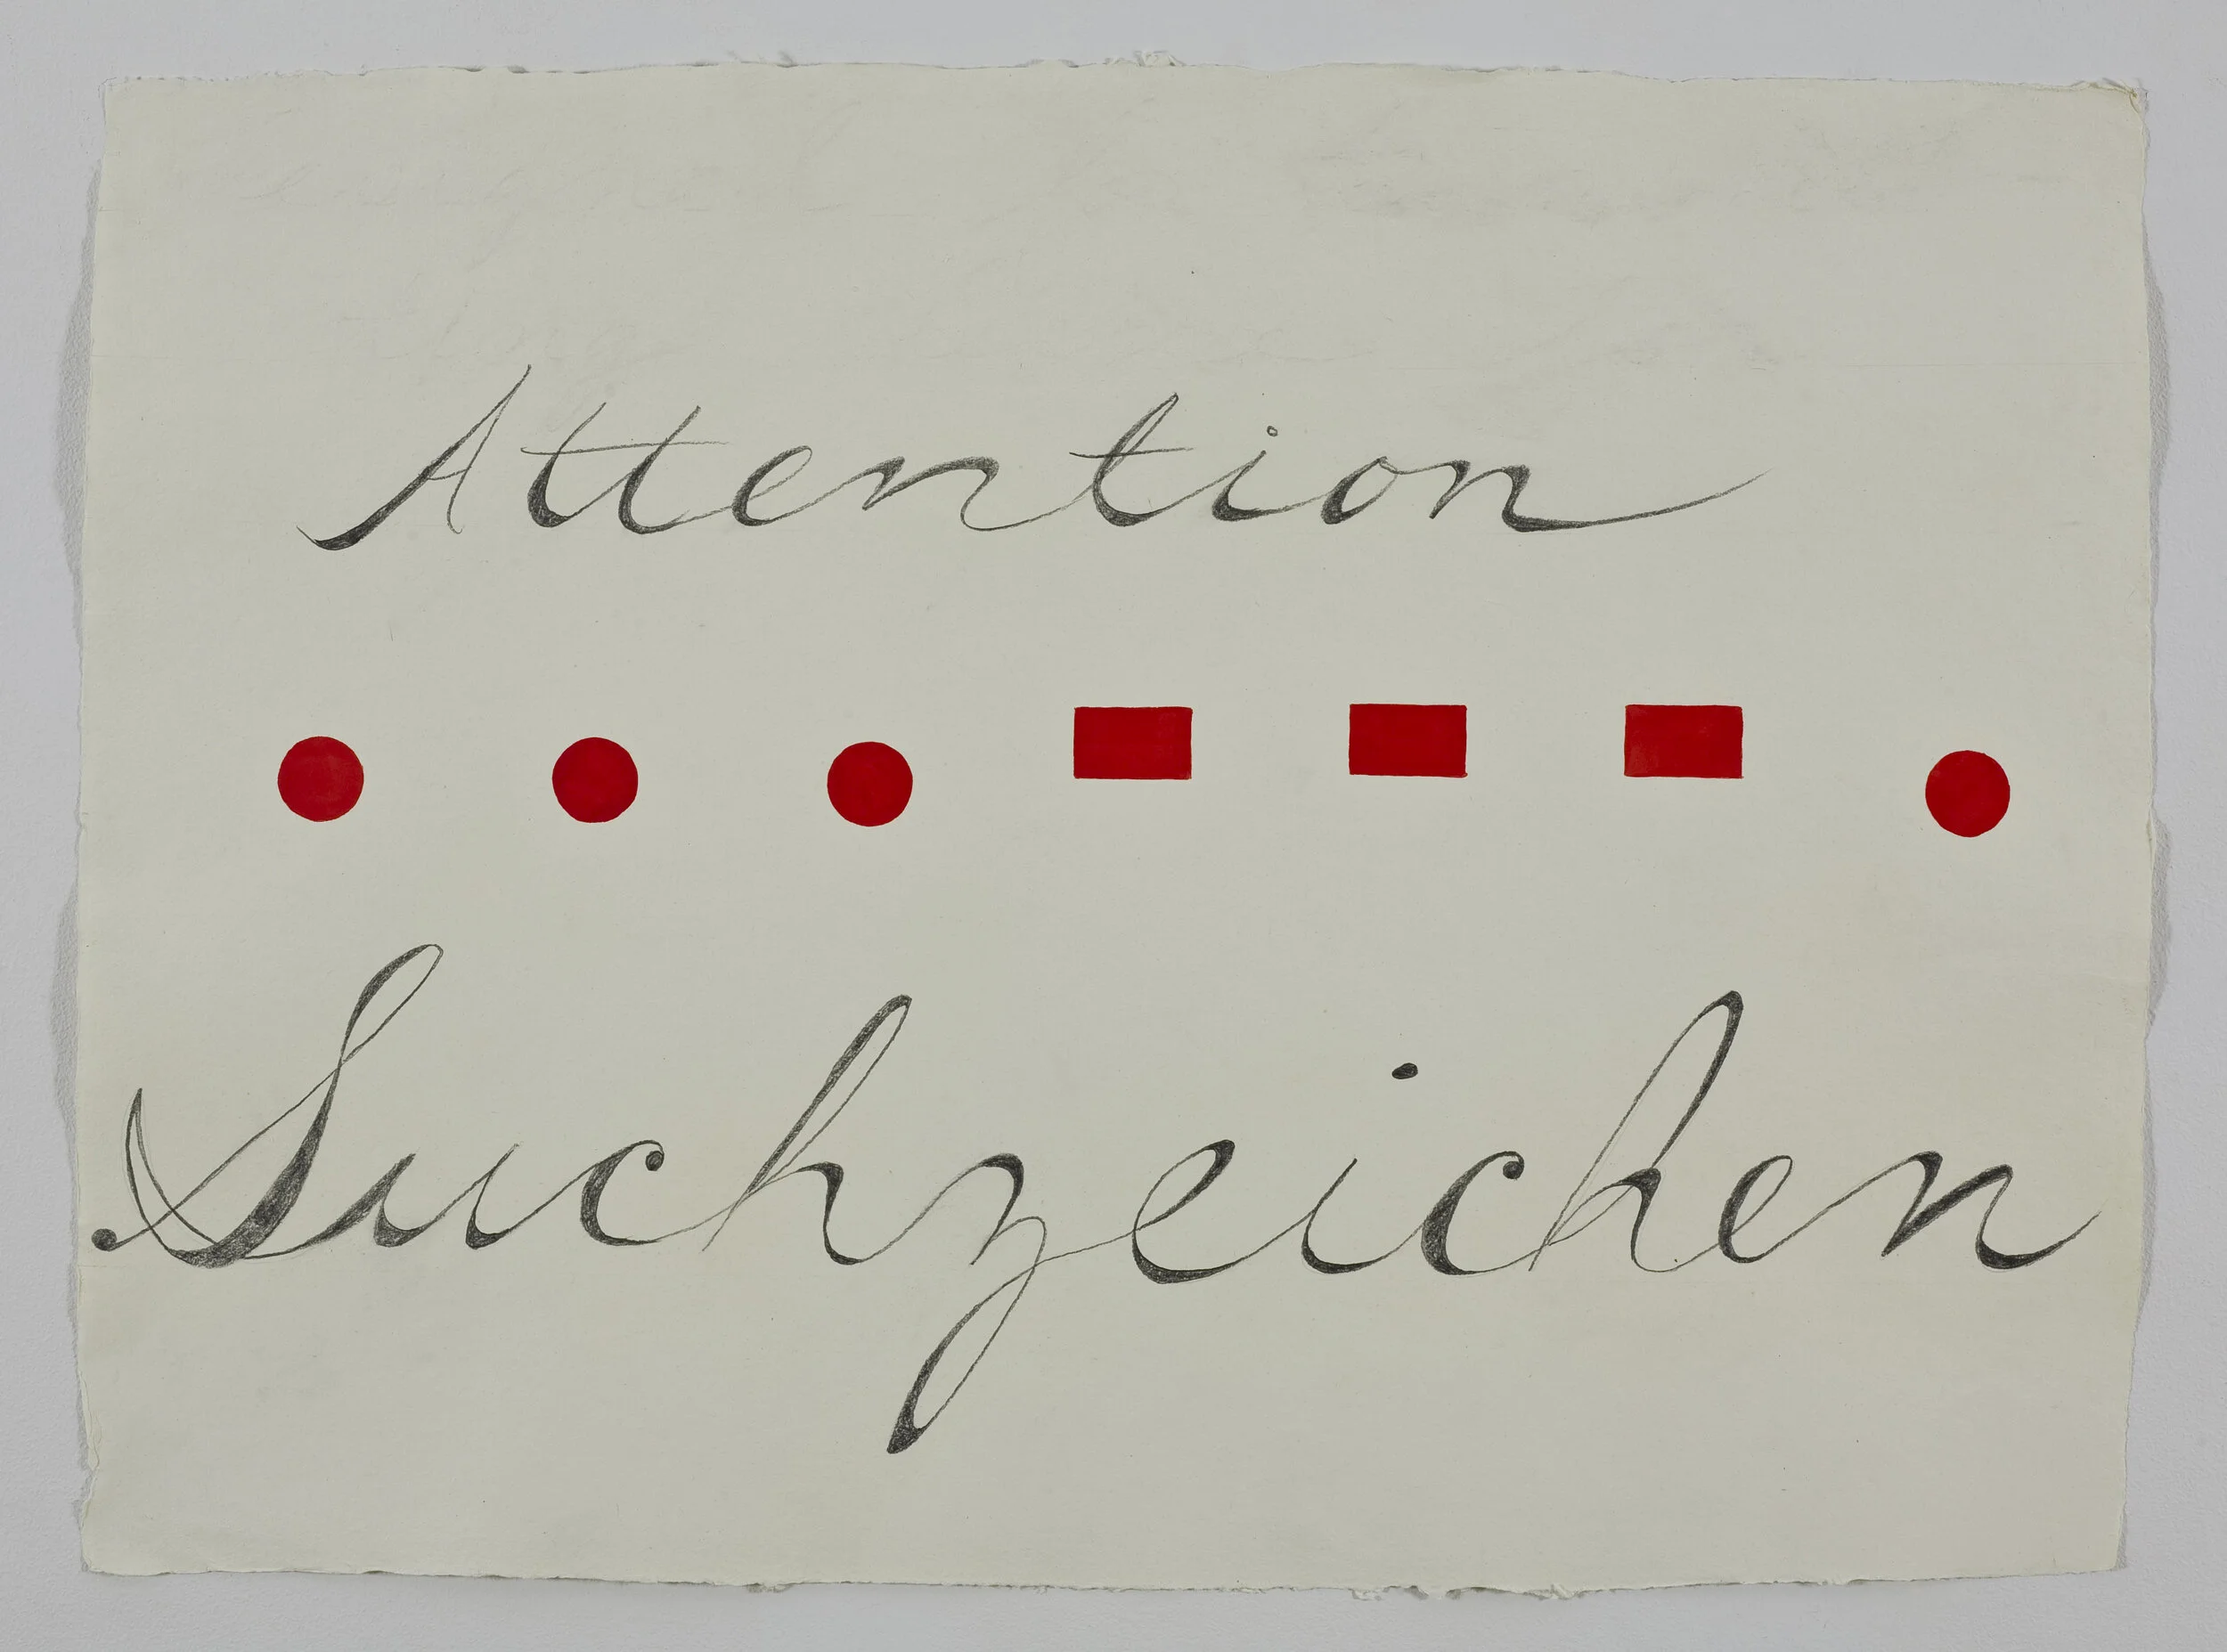 Attention
Suchzeichen